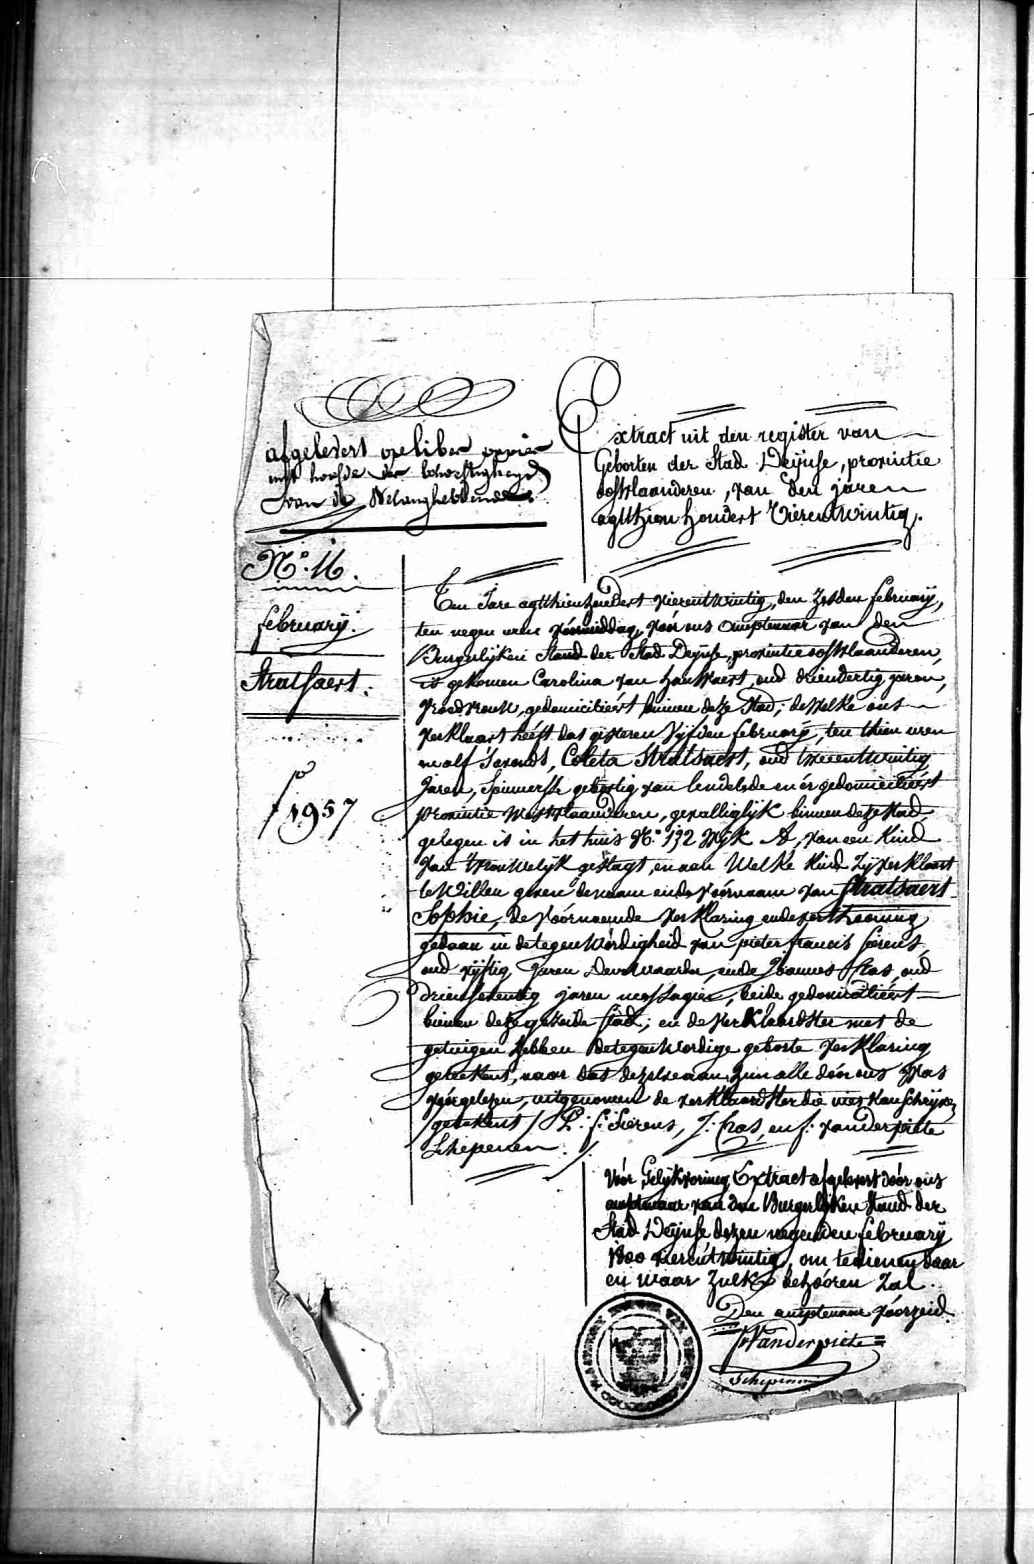 afgelevert op liber papier
uijt hoofde der behoeftigheyd
van de Belanghebbende
Extract uit den register van
Geborten der Stad Deijnse, provintie
oostvlaanderen, van den jaren
agtthien hondert Vierentwintig.
N.º 16.
february.
Stratsaert.
1957
Ten Jare agtthienhondert vierentwintig, den zesden february,
ten negen uren vóórmiddag, vóór ons amptenaar van den
Burgerlijken Stand der Stad Deijnse, provintie oostvlaanderen,
is gekomen Carolina van hauwaert, oud driendertig jaren,
vroedvrouw, gedomiciliëert binnen deze Stad; dewelke ons
verklaart heeft dat gisteren vijfden february, ten thien uren
en alf s'avonds, Coleta Stratsaert, oud tweeentwintig
jaren, Spinnersse gebortig van lendelede en ér gedomiciliëert
provintie Westvlaanderen, gevalliglijk binnen deze Stad
gelegen is in het huis N.º 132 Wijk A, van een Kind
van vrouwelijk geslagt, en aen Welke Kind zij verklaart
te Willen geven den naam ende vóórnaam van Stratsaert
Sophie, de vóórnoemde verklaring ende vertheoning
gedaan in de tegenwóórdigheid van pieter francis Sierens,
oud vijftig jaren Deurwaarder, ende Joannes Cras, oud
drienseventig jaren messagier, beide gedomiciliëert
binnen deze gezeide Stad; en de verklaardster met de
getuigen hebben de tegenwordige geborte verklaring
geteekent, naar dat dezelve aan hun alle dóór ons Was
vóórgelezen, uitgenomen de verklaardster die niet kan schrijven
geteekent / P: f: Sierens, J: Cras, en f: vanderpiete
Schepenen.
Vóór Gelijkvorming Extract afgelevert dóór ons
amptenaar van den Burgerlijken Stand der
Stad Deijnse dezen negenden february
1800 vierentwintig, om te dienen daar
en waar zulks behóóren zal.
Den amptenaar vóórzeid.
Vanderpiete
Schepenen